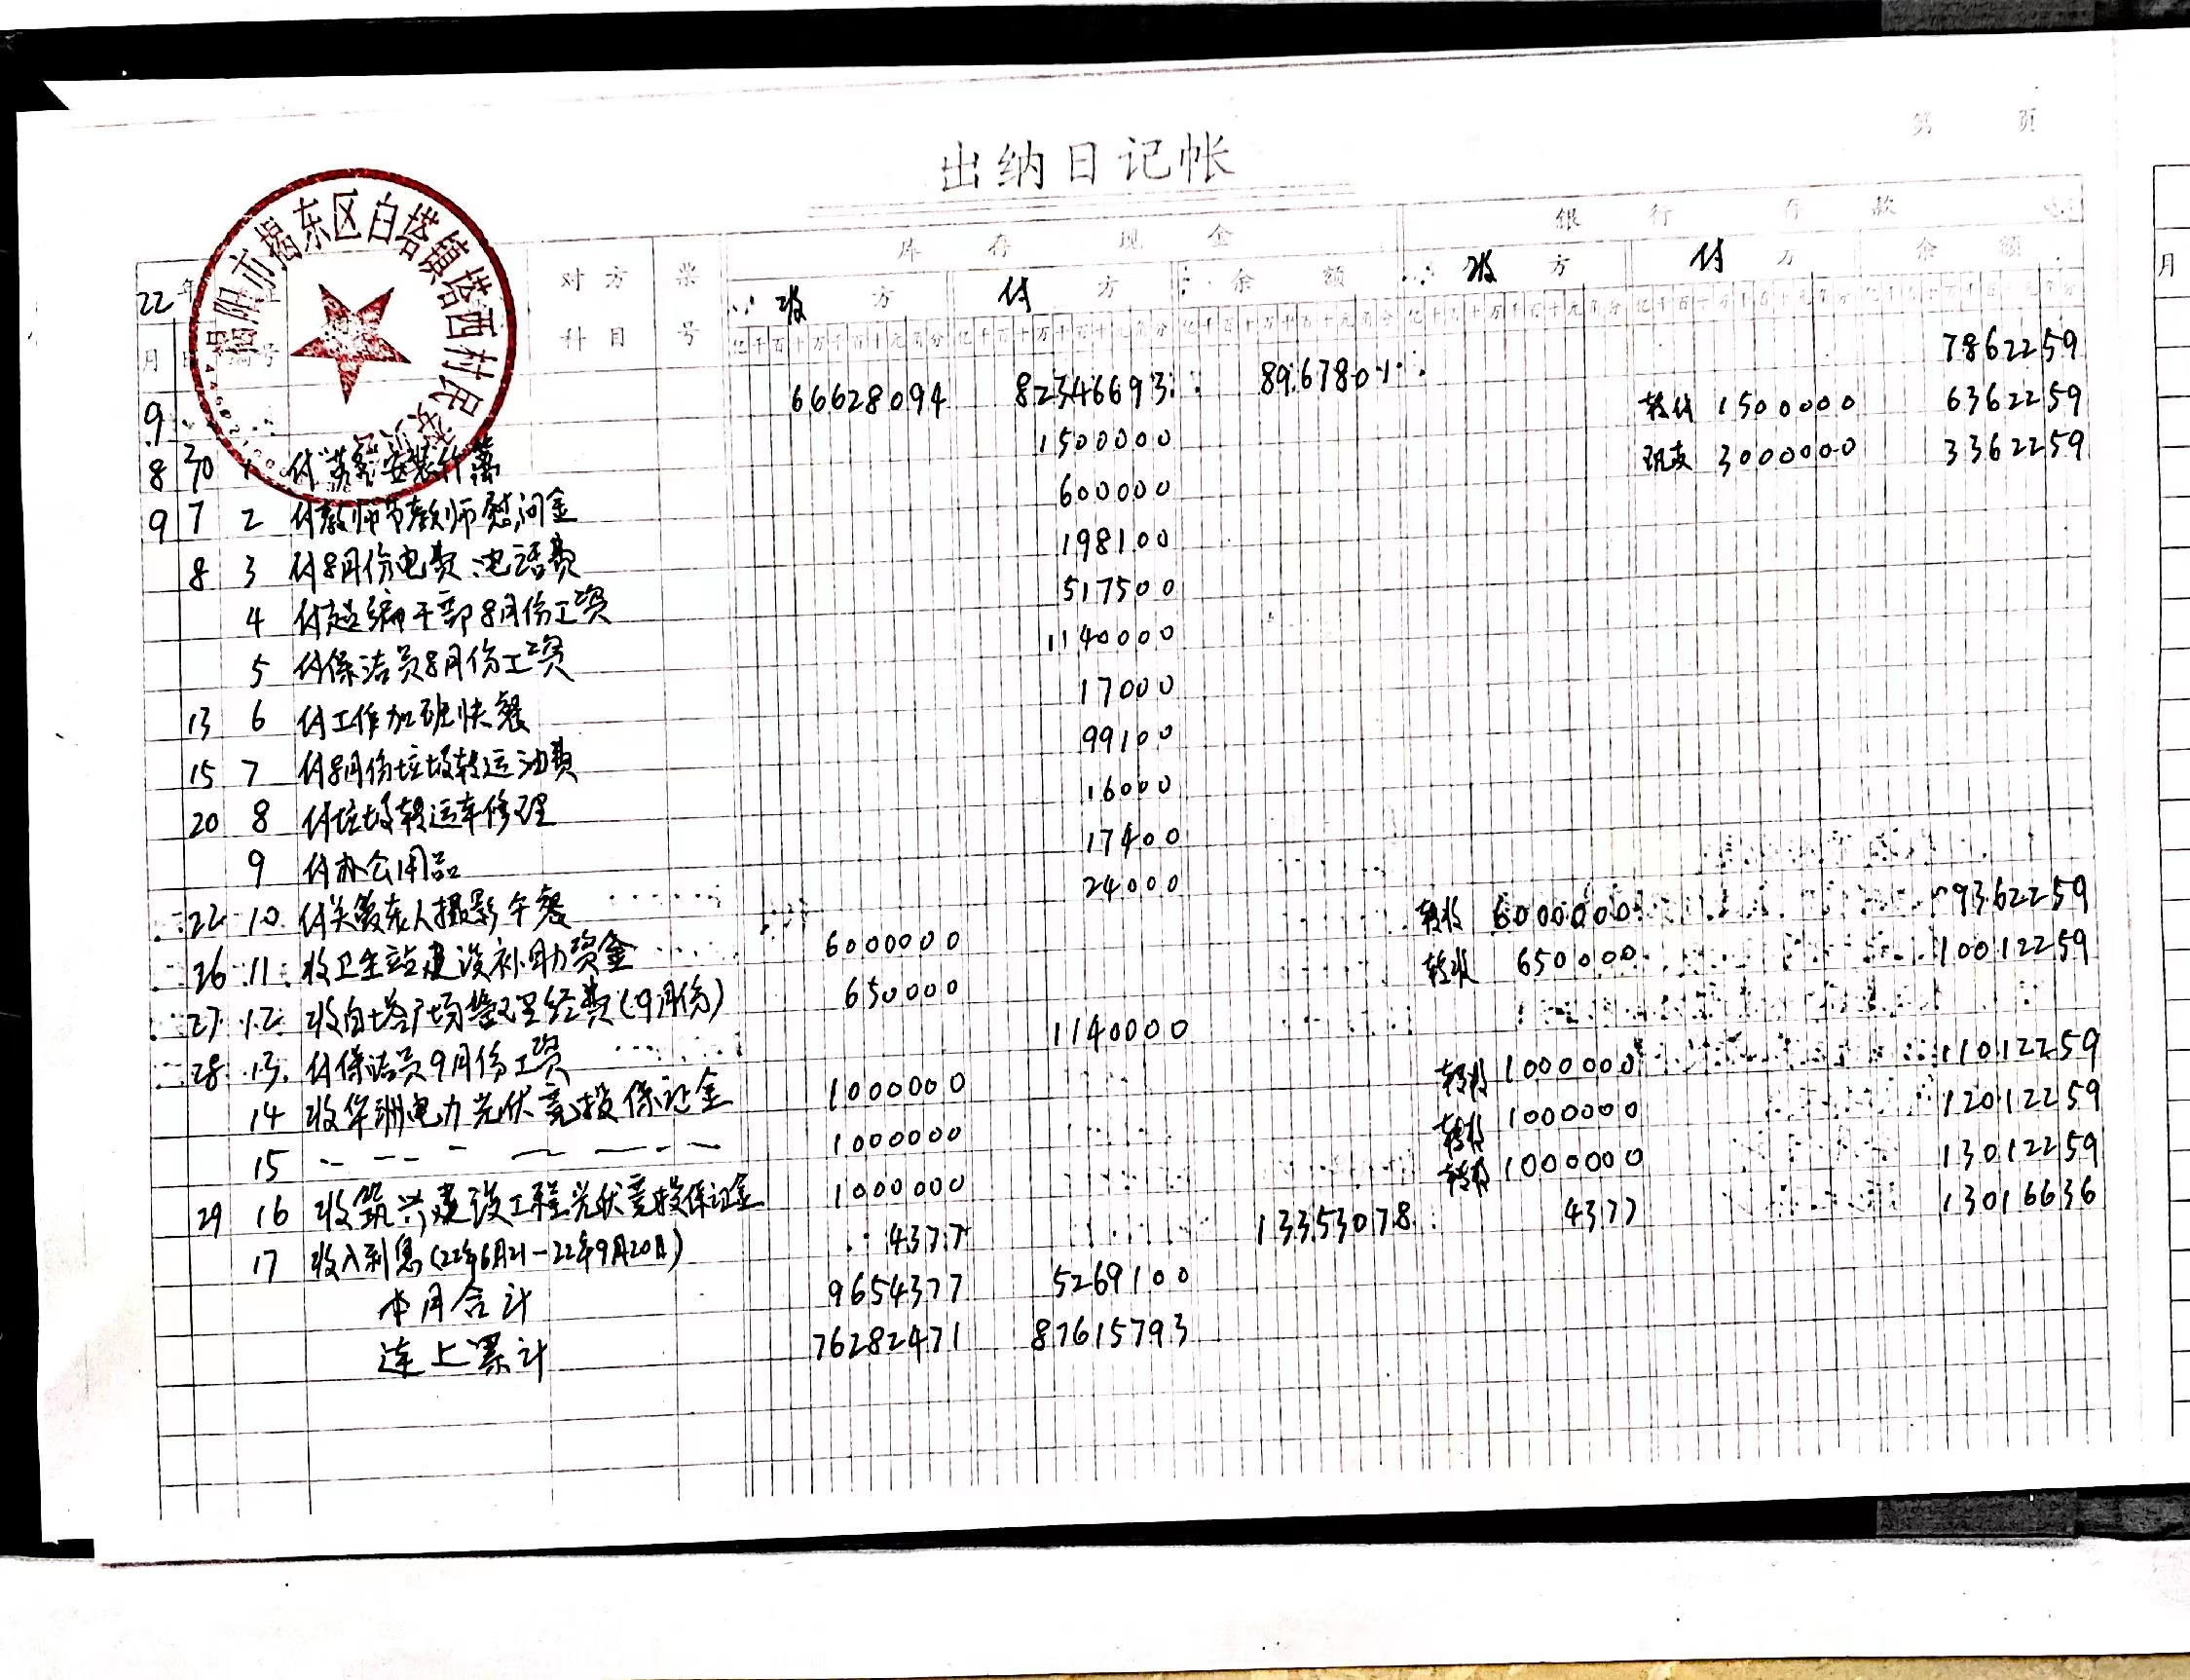 第 页
出纳日记帐
库存现金 银行存款
22年 对方 票 收方 付方 余额 收方 付方 余额
月 号 科目 号 亿千百十万千百十元角分 亿千百十万千百十元角分 亿千百十万千百十元角分 亿千百十万千百十元角分 亿千百十万千百十元角分 亿千百十万千百十元角分
揭阳市揭东区白塔镇塔西村民委员会
9 66628094 82346693 8967801 7862259
8 30 1 付 安装竹 1500000 转付 1500000 6362259
9 7 2 付教师节教师慰问金 600000 现支 3000000 3362259
8 3 付8月份电费、电话费 198100
4 付超编干部8月份工资 517500
5 付保洁员8月份工资 1140000
13 6 付工作加班快餐 17000
15 7 付8月份垃圾转运油费 99100
20 8 付垃圾转运车修理 16000
9 付办公用品 17400
22 10 付关爱老人摄影午餐 24000
26 11 收卫生站建设补助资金 6000000 转收 6000000 9362259
27 12 收白塔广场管理经费(9月份) 650000 转收 650000 10012259
28 13 付保洁员9月份工资 1140000
14 收华洲电力光伏竞投保证金 1000000 转收 1000000 11012259
15 1000000 转收 1000000 12012259
29 16 收筑兴建设工程光伏竞投保证金 1000000 转收 1000000 13012259
17 收入利息(22年6月21-22年9月20日) 4377 13353078 4377 13016636
本月合计 9654377 5269100
连上累计 76282471 87615793